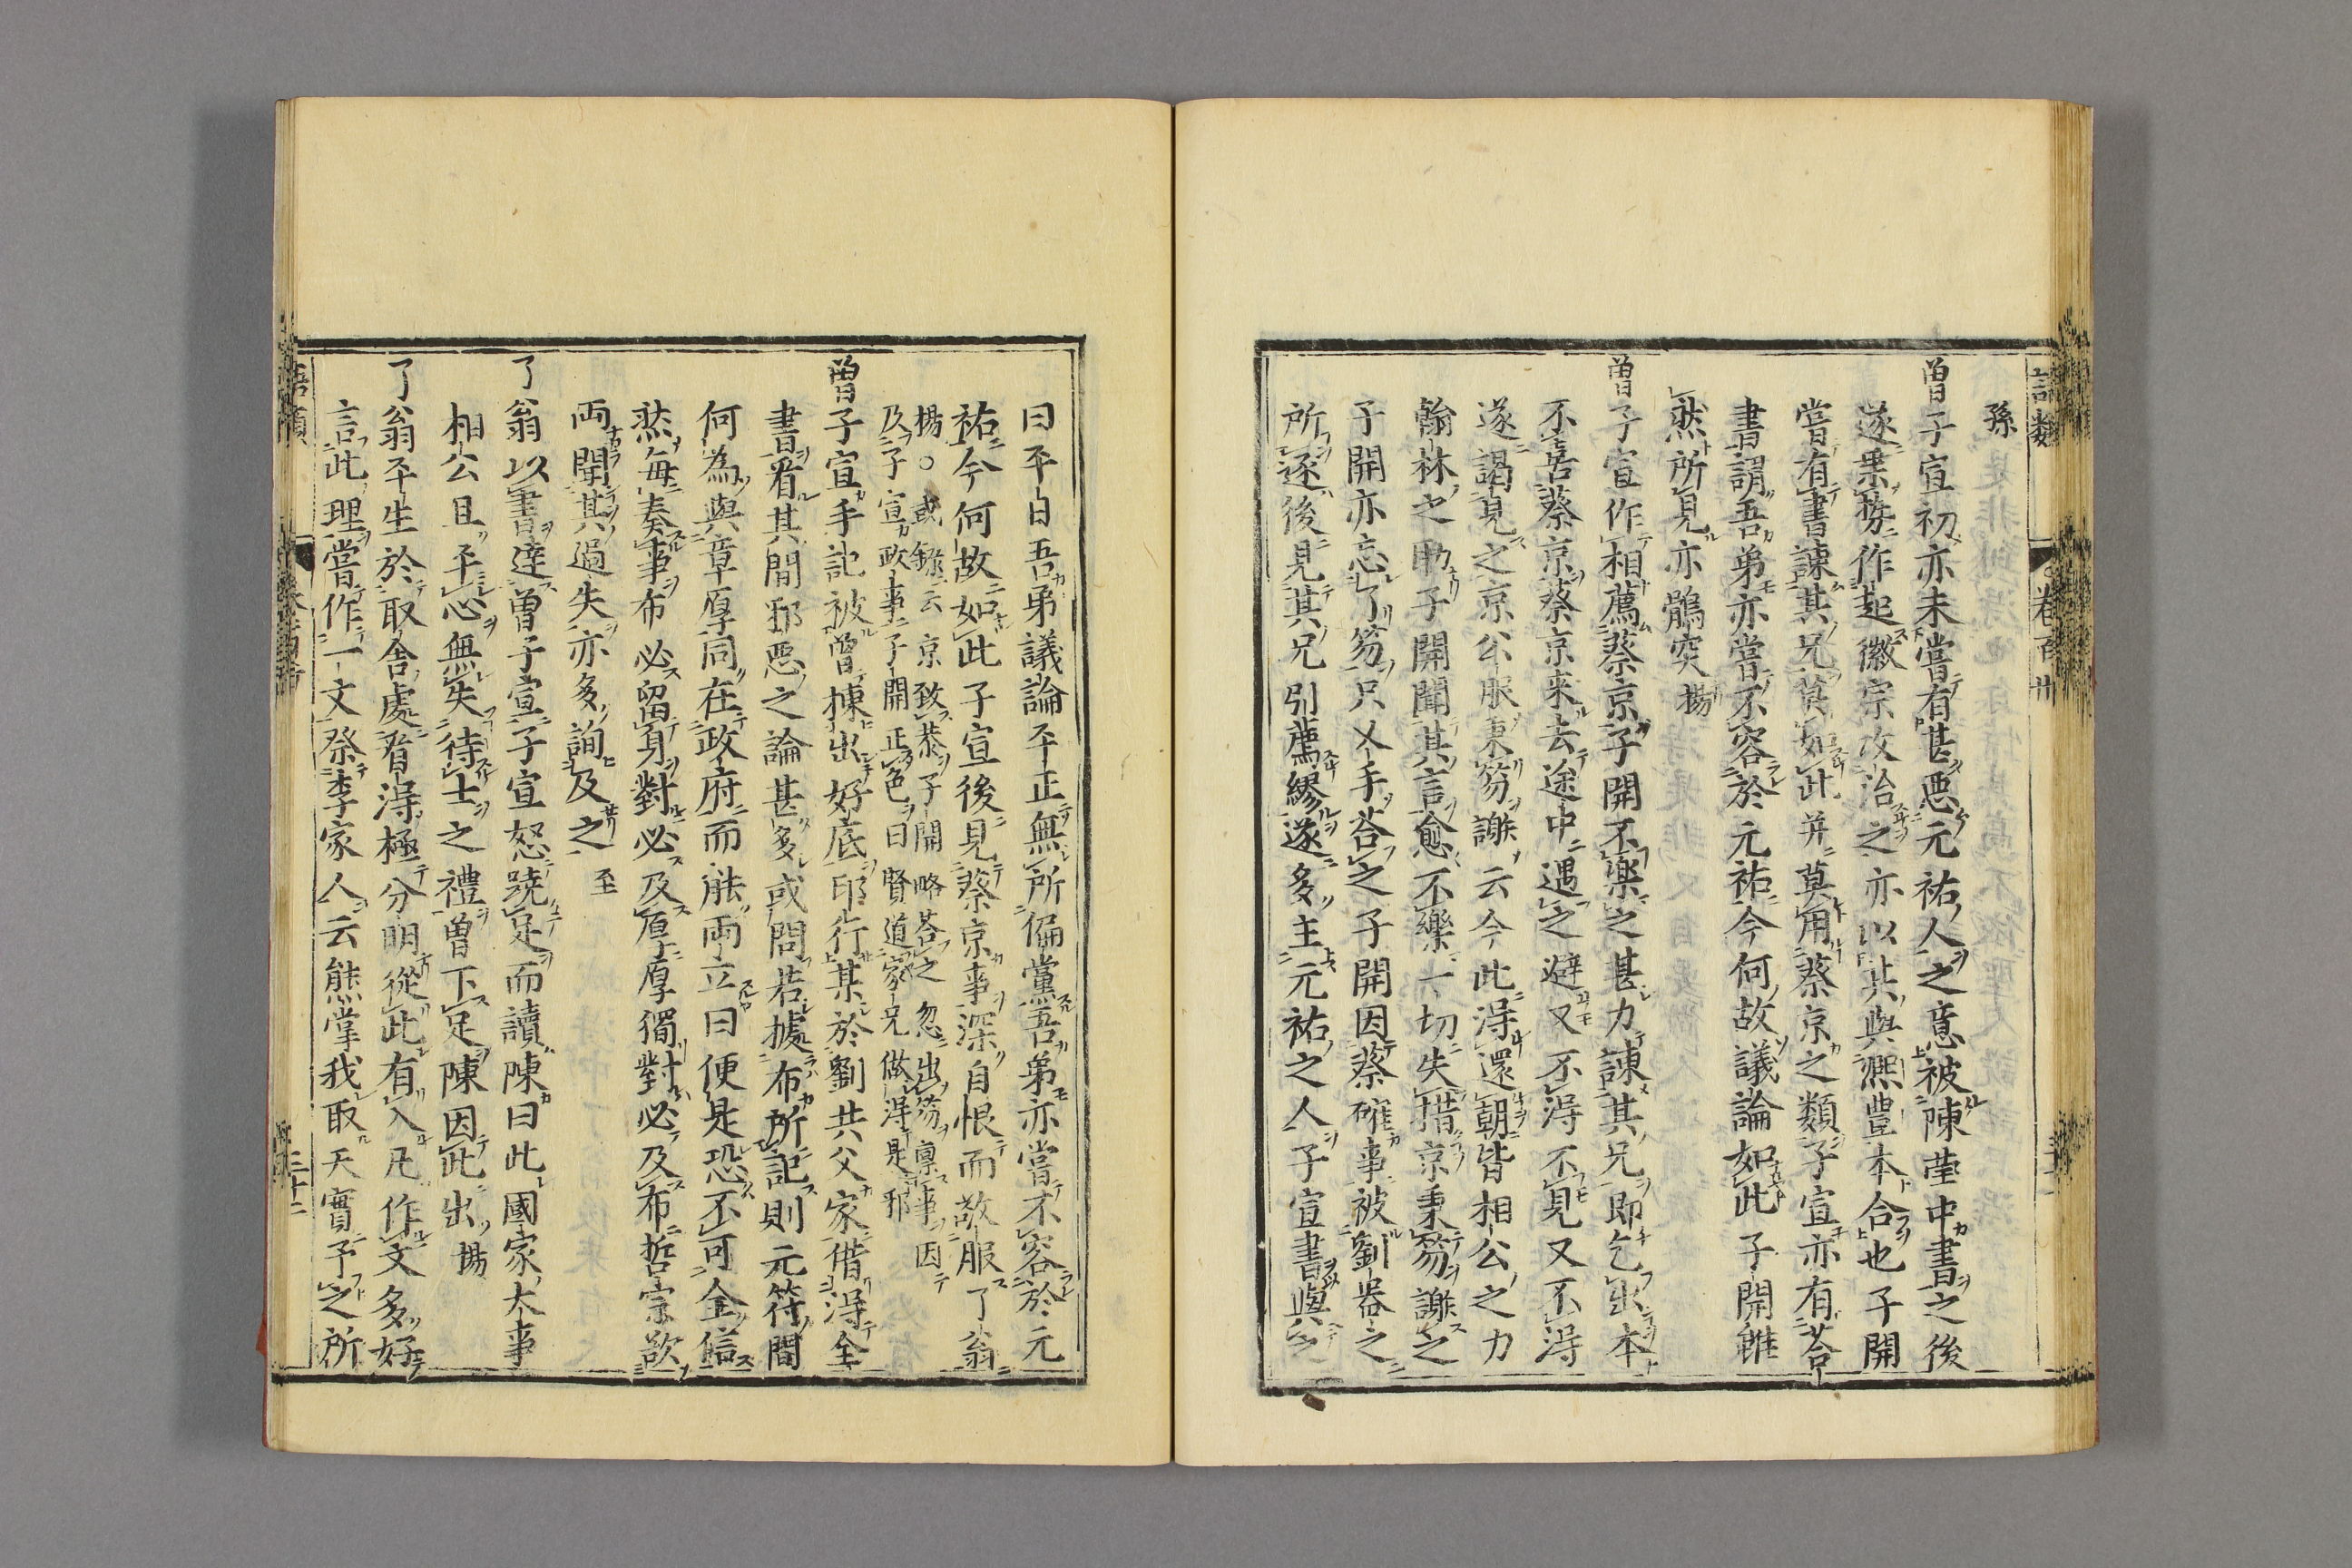 語類　卷百卅
孫
曾子宣初亦未嘗有甚惡元祐人之意被陳瑩中書之後
遂乘勢作起徽宗攻治之亦以其與熙豐本合也子開
嘗有書諫其兄莫如此并莫用蔡京之類子宣亦有荅
書謂吾弟亦嘗不容於元祐今何故議論如此子開雖
然所見亦鶻突揚
曾子宣作相薦蔡京子開不樂之甚力諫其兄即乞出本
不喜蔡京蔡京来去途中遇之避又不淂不見又不淂
遂謁見之京公服秉笏謝云今此淂還朝皆相公之力
翰林之助子開聞其言愈不樂一切失措京秉笏謝之
子開亦忘了笏只乂手荅之子開因蔡確事被劉器之
所逐後見其兄引薦繆遂多主元祐之人子宣書與之
曰平日吾弟議論平正無所偏黨吾弟亦嘗不容於元
祐今何故如此子宣後見蔡京事深自恨而敬服了翁
揚○或錄云京致恭子開略荅之忽出笏凛事因
及子宣政事子開正色曰賢道家兄做淂是邪
曾子宣手記被曾揀出好底印行某於劉共父家借淂全
書看其間邪惡之論甚多或問若據布所記則元符間
何為與章厚同在政府而能兩立曰便是恐不可全信
然每奏事布必留身對必及厚厚獨對必及布哲宗欲
両聞其過失亦多詢及之至
了翁以書達曾子宣子宣怒蹺足而讀陳曰此國家大事
相公且平心無失待士之禮曾下足陳因此出揚
了翁平生於取舍處看淂極分明從此有入凡作文多好
言此理嘗作一文祭李家人云熊掌我取天實予之所
語類　三十二